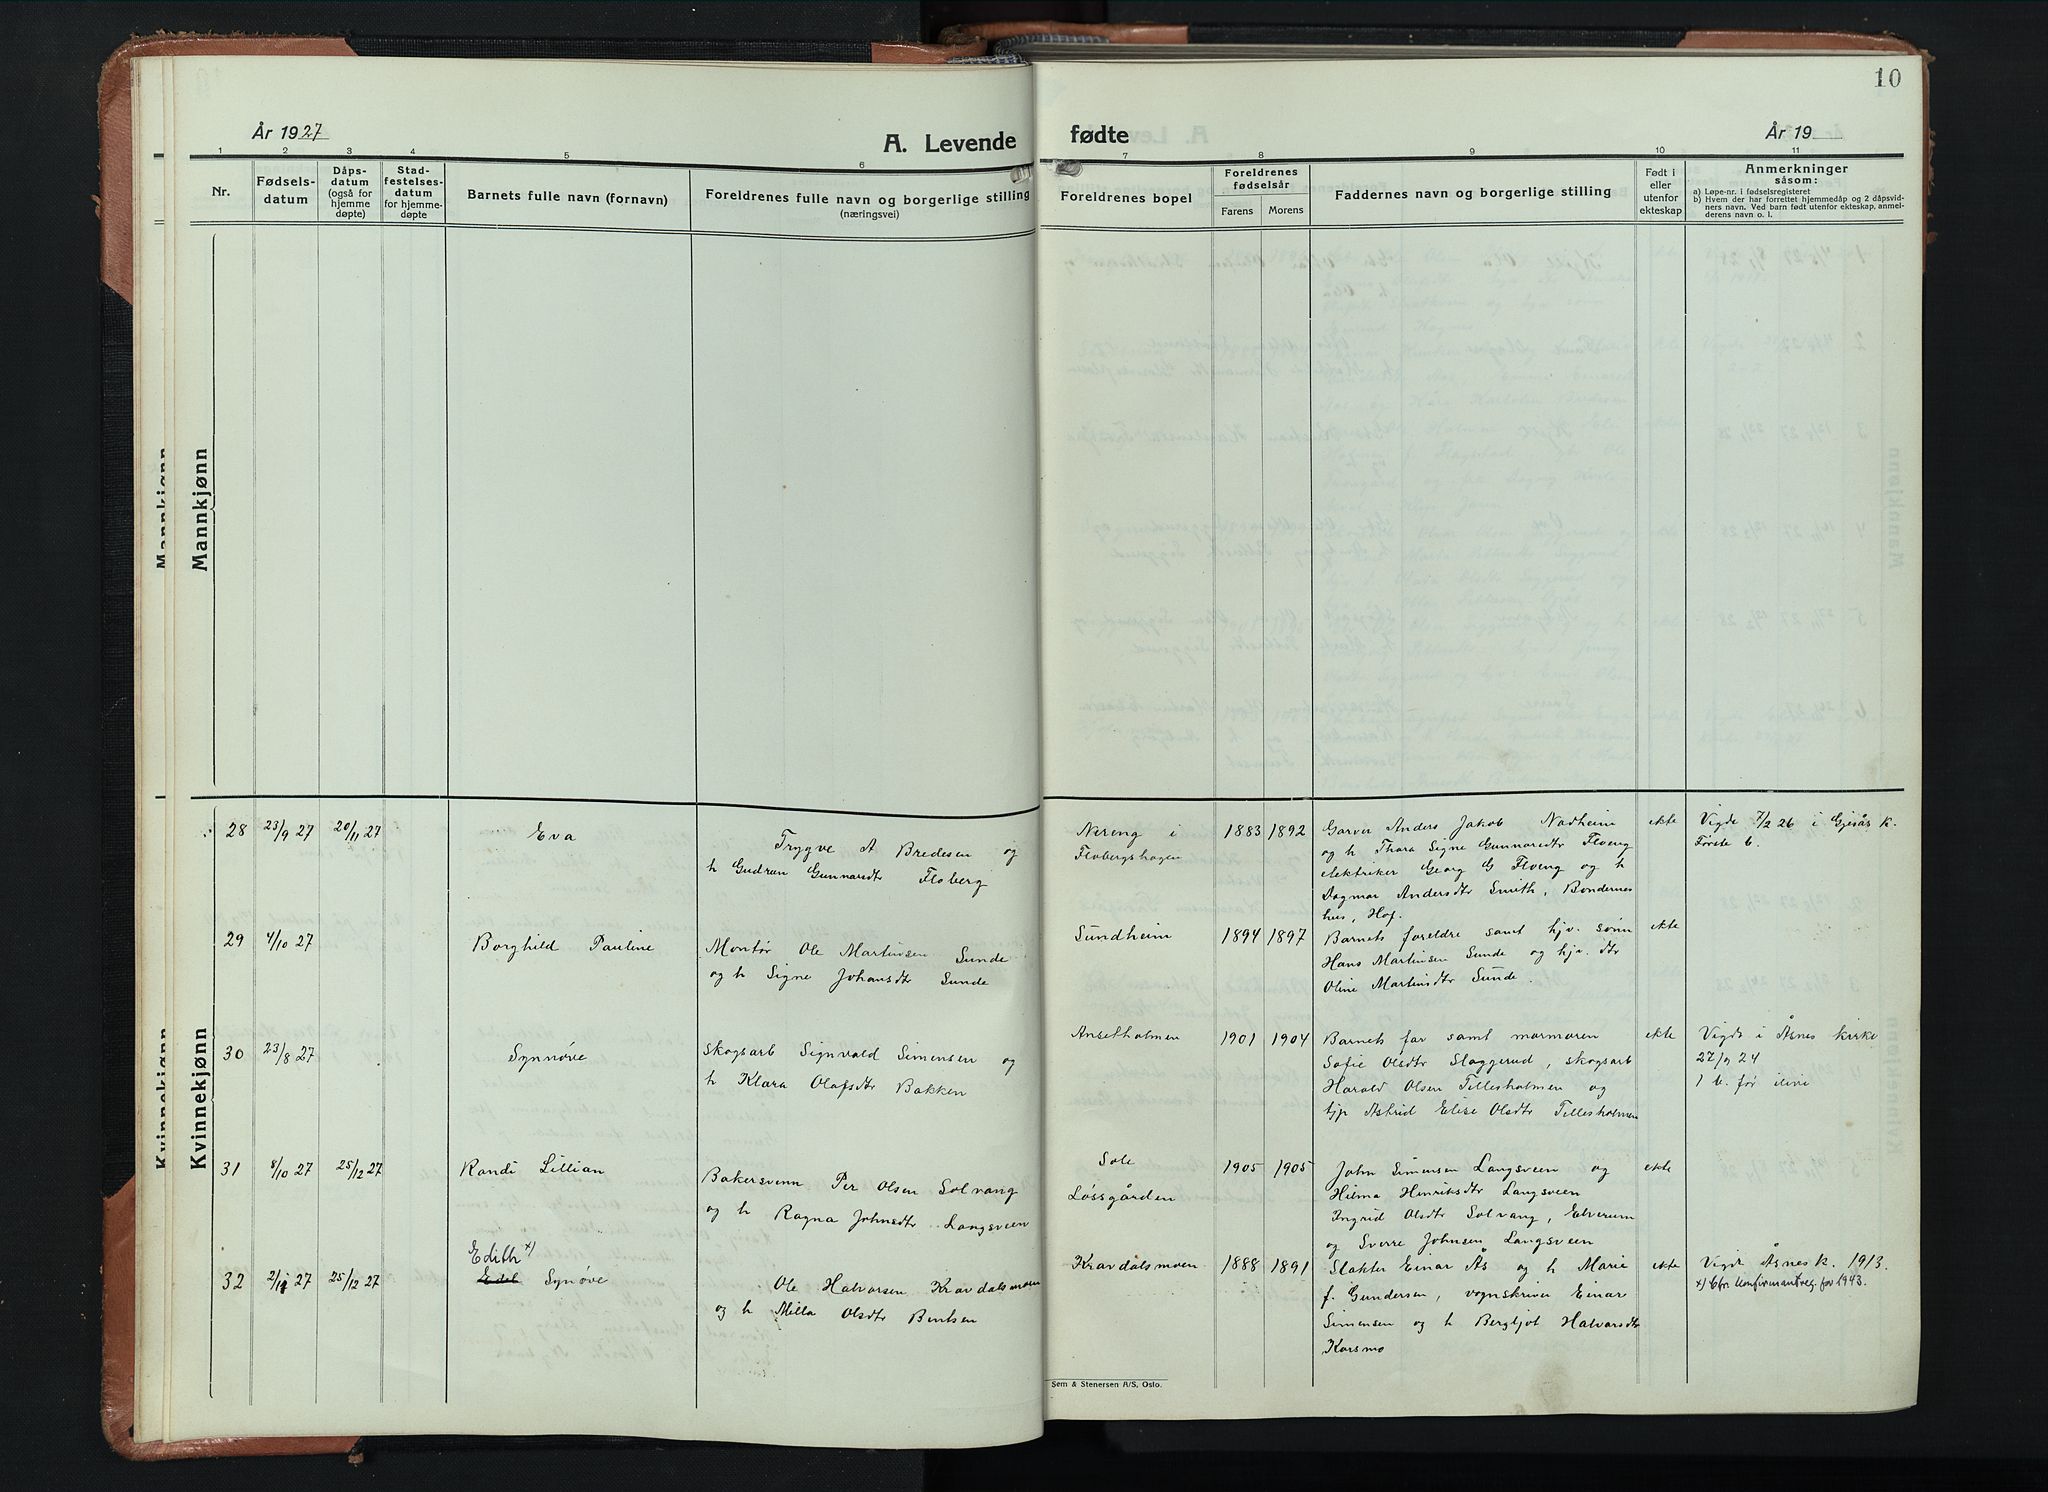 10
År 1927
A. Levende
fødte
År 19
1 2 3 4 5 6 7 8 9 10 11
Nr.
Fødsels-
datum
Dåps-
datum
(også for
hjemme
døpte)
Stad-
festelses-
datum
for hjemme-
døpte
Barnets fulle navn (fornavn)
Foreldrenes fulle navn og borgerlige stilling
(næringsvei)
Foreldrenes bopel
Foreldrenes
fødselsår
Farens Morens
Faddernes navn og borgerlige stilling
Født i
eller
utenfor
ekteskap
Anmerkninger
såsom:
a) Løpe-nr. i fødselsregisteret
b) Hvem der har forrettet hjemmedåp og 2 dåpsvid-
ners navn. Ved barn født utenfor ekteskap, anmel-
derens navn o. l.
Mannkjønn
Mannkjønn
Kvinnekjønn
Kvinnekjønn
28 23/9 27 20/11 27
Eva
Trygve A Bredesen og
h Gudrun Gunnarsdtr Floberg
Nereng i
Flobergshagen
1883 1892
Garver Anders Jakob Nadheim
og h Thara Signe Gunnarsdtr Floeng
elektriker Georg G Floeng og h
Dagmar Andersdtr Smith, Bondernes
hus, Hof.
ekte
Vigde 7/2 26 i Gjesås k.
Første b.
29 4/10 27
Borghild Pauline
Montør Ole Martinsen Sunde
og h Signe Johansdtr Sunde
Sundheim
1894 1897
Barnets foreldre samt hjv. sønn
Hans Martinsen Sunde og hjv. dtr
Oline Martinsdtr Sunde.
ekte
30 23/8 27
Synnøve
Skogsarb Signvald Simensen og
h Klara Olafsdtr Bakken
Ansetholmen
1901 1904
Barnets far samt mormoren
Sofie Olsdtr Slaggerud, skogsarb
Harald Olsen Tillesholmen og
tjp Astrid Elise Olsdtr Tillesholmen
ekte
Vigde i Åsnes kirke
27/9 24
1 b. før ilive
31 8/10 27 25/12 27
Randi Lillian
Bakersvenn Per Olsen Solvang
og h Ragna Johnsdtr Langsveen
Sole
Løssgården
1905 1905
John Simensen Langsveen og
Hilma Henriksdtr Langsveen
Ingrid Olsdtr Solvang, Elverum
og Sverre Johnsen Langsveen
ekte
32 2/11 27 25/12 27
Edith x)
Edel Synøve
Ole Halvorsen Kravdalsmoen
og h Milla Olsdtr Bentsen
Kravdalsmoen
1888 1891
Slakter Einar Ås og h Marie
f. Gundersen, vognskriver Einar
Simensen og h Bergljot Halvorsdtr
Korsmo
ekte
Vigde Åsnes k. 1913.
x) Cfr. konfirmantreg. for 1943.
Sem & Stenersen A/S, Oslo.